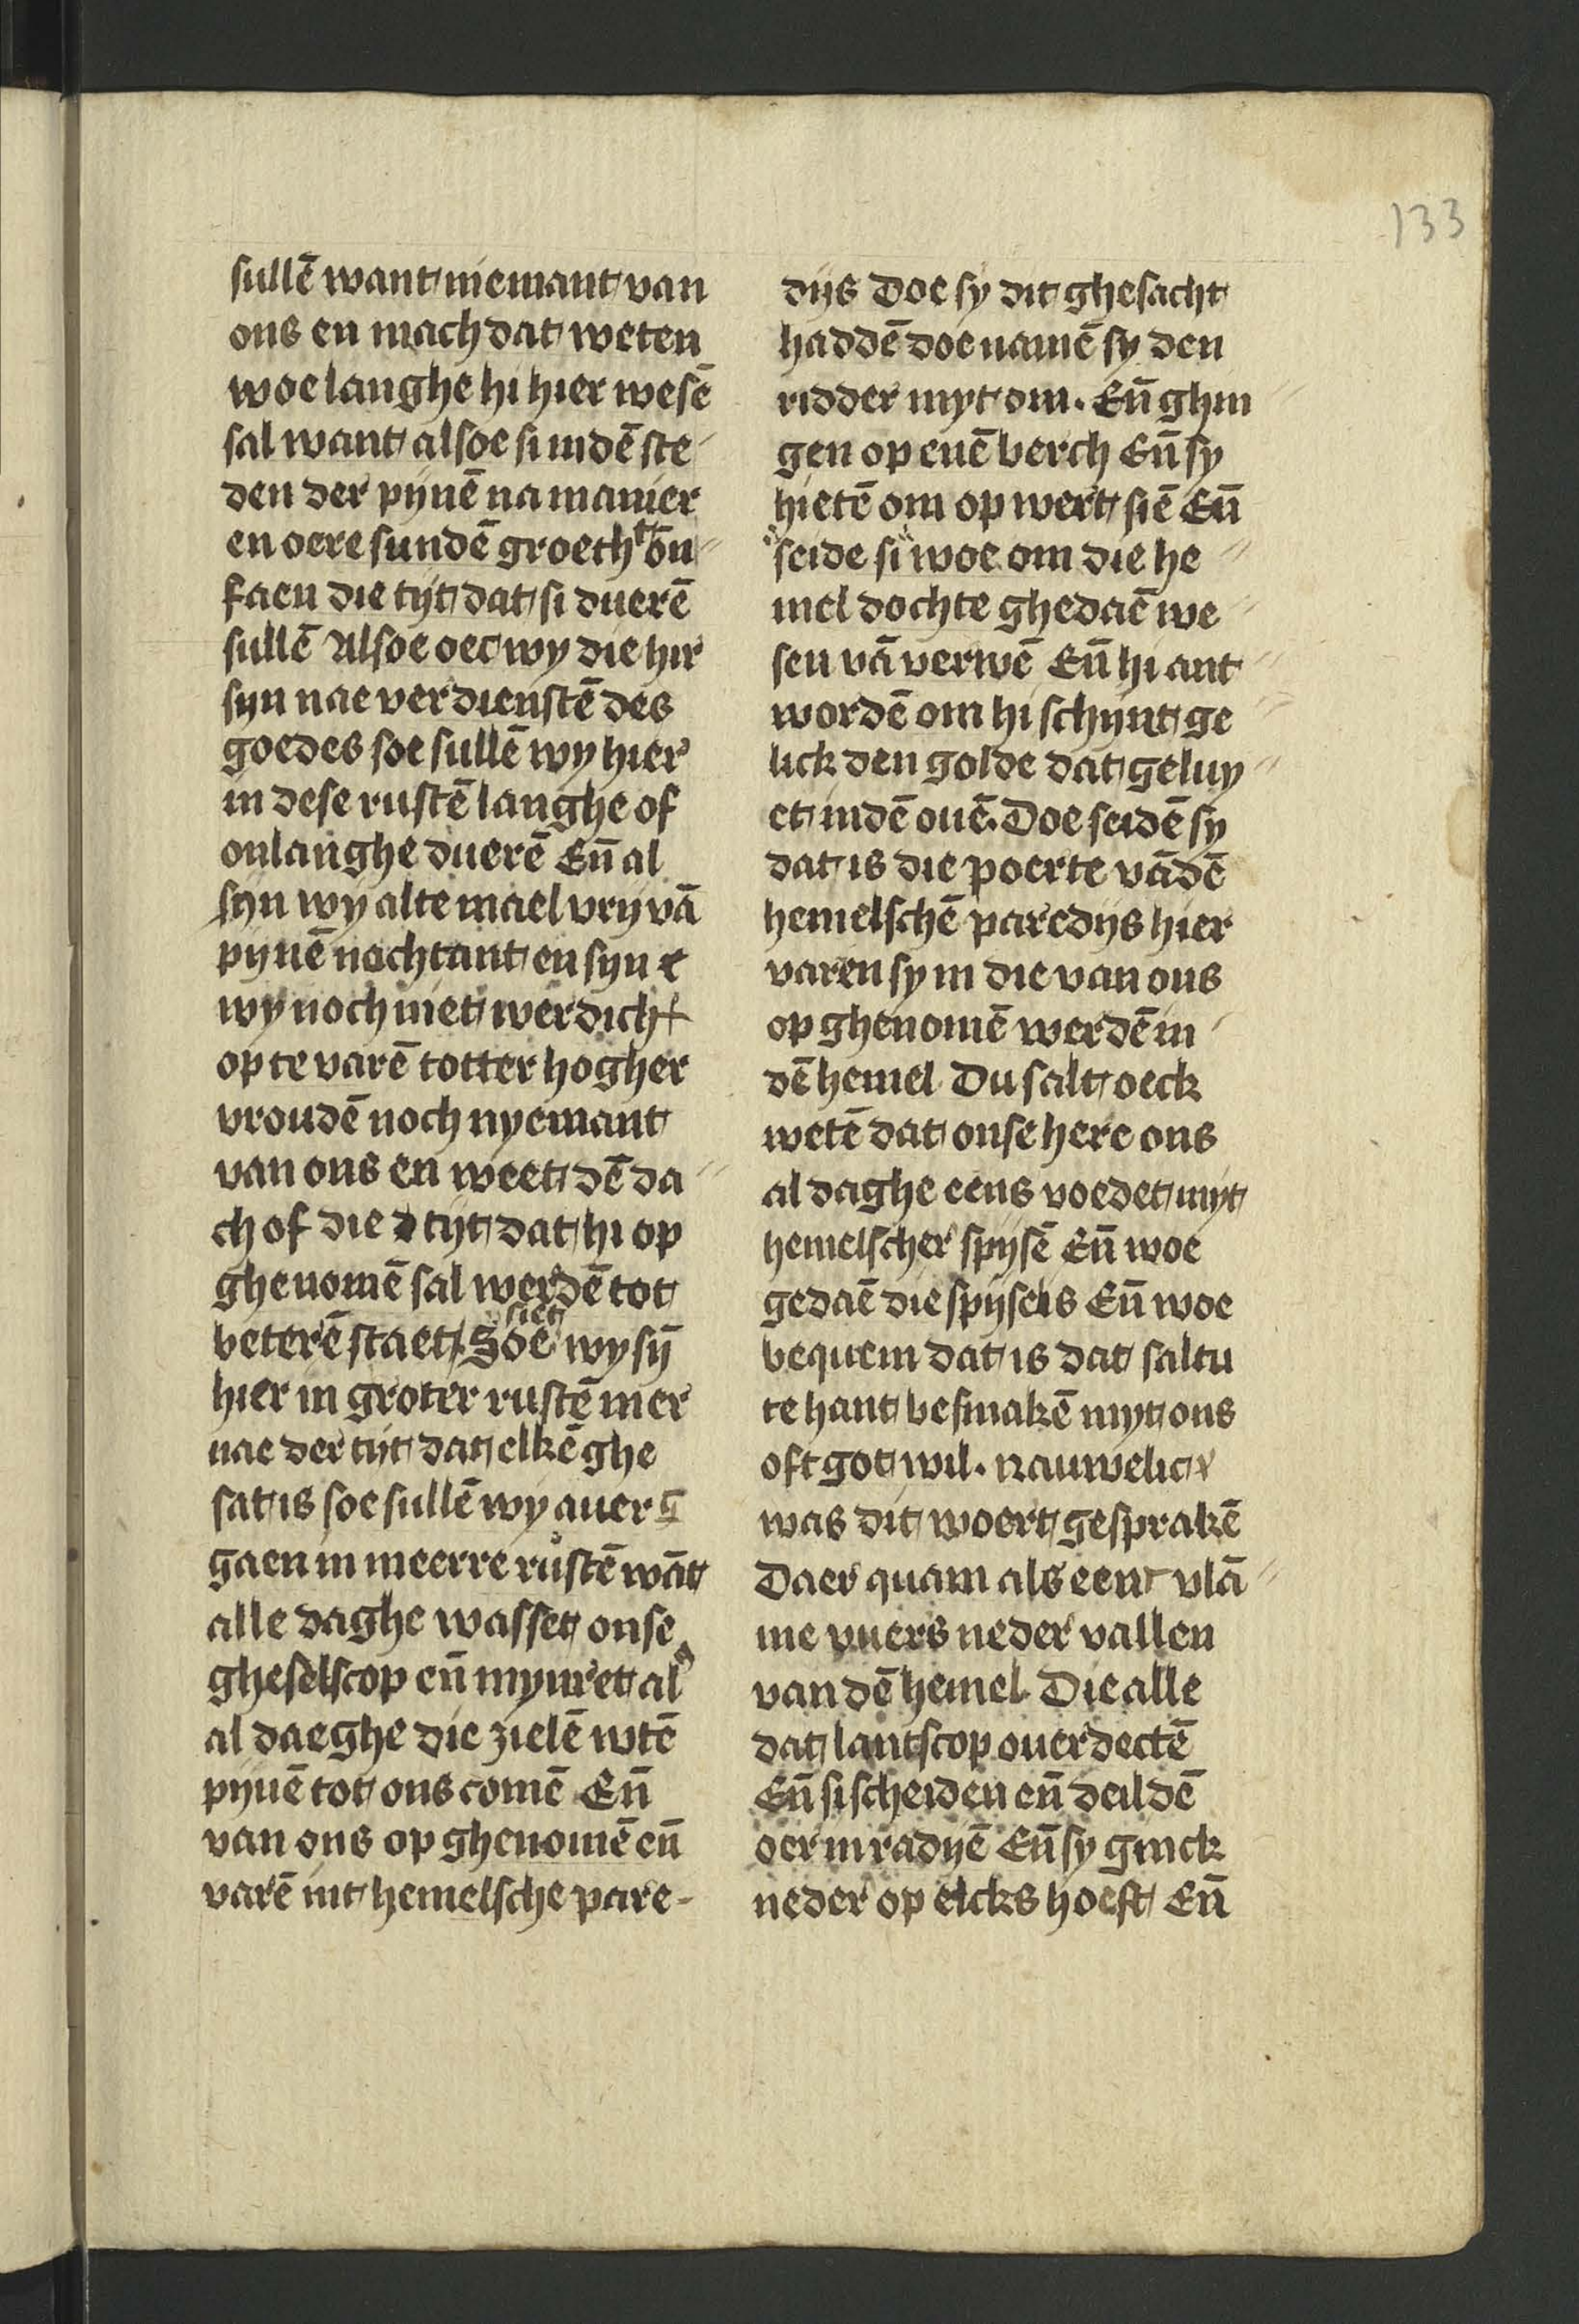 133
sullē want niemant van
ons en mach dat weten
woe langhe hi hier wesē
sal want alsoe si indē ste
den der pynē na manier
en oere sundē groeth
faen die tijt dat si duerē
sullē Alsoe oec wy die hir
syn nae verdienstē des
goedes soe sullē wy hier
in dese rustē langhe of
onlanghe duerē Eñ al
syn wy alte mael vry vā
pynē nochtant en syn
wy noch niet werdich
op te varē totter hogher
vroudē noch nyemant
van ons en weet dē da
ch of die tijt dat hi op
ghenomē sal werdē tot
beterē staet. Soe siet wy sȳ
hier in groter rustē mer
nae der tijt dat elkē ghe
sat is soe sullē wy auer g
gaen in meerre rustē wāt
alle daghe wasset onse
gheselscop eñ mynret al
al daeghe die zielē wtē
pynē tot ons comē Eñ
van ons op ghenomē eñ
varē int hemelsche pare-
dijs Doe sy dit ghesacht
haddē doe namē sy den
ridder myt om. Eñ ghin
gen op enē berch Eñ sy
hietē om op wert siē Eñ
seide si woe om die he
mel dochte ghedaē we
sen vā verwē Eñ hi ant
wordē om hi schijnt ge
lick den golde dat geluy
et indē ouē. Doe seidē sy
dat is die poerte vādē
hemelschē paredijs hier
varen sy in die van ons
op ghenomē werdē in
dē hemel Du salt oeck
wetē dat onse here ons
al daghe eens voedet myt
hemelscher spijsē Eñ woe
gedaē die spijse is Eñ woe
bequem dat is dat saltu
te hant besmakē myt ons
oft got wil. Nauwelic
was dit woert gesprakē
Daer quam als een vlā
me vuers neder vallen
van dē hemel Die alle
dat lantscop ouerdectē
Eñ si scheiden eñ deildē
oer in radyē Eñ sy ginck
neder op elcks hoeft Eñ